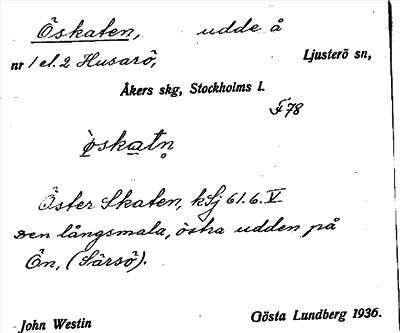 Öskaten, udde å
nr 1 el. 2 Husarö, Ljusterö sn,
Åkers skg, Stockholms l.
F 78
ò̤skatn̥
Öster Skaten, kSj 61.6.V
Den långsmala, östra udden på
Ön, (Särsö).
John Westin Gösta Lundberg 1936.